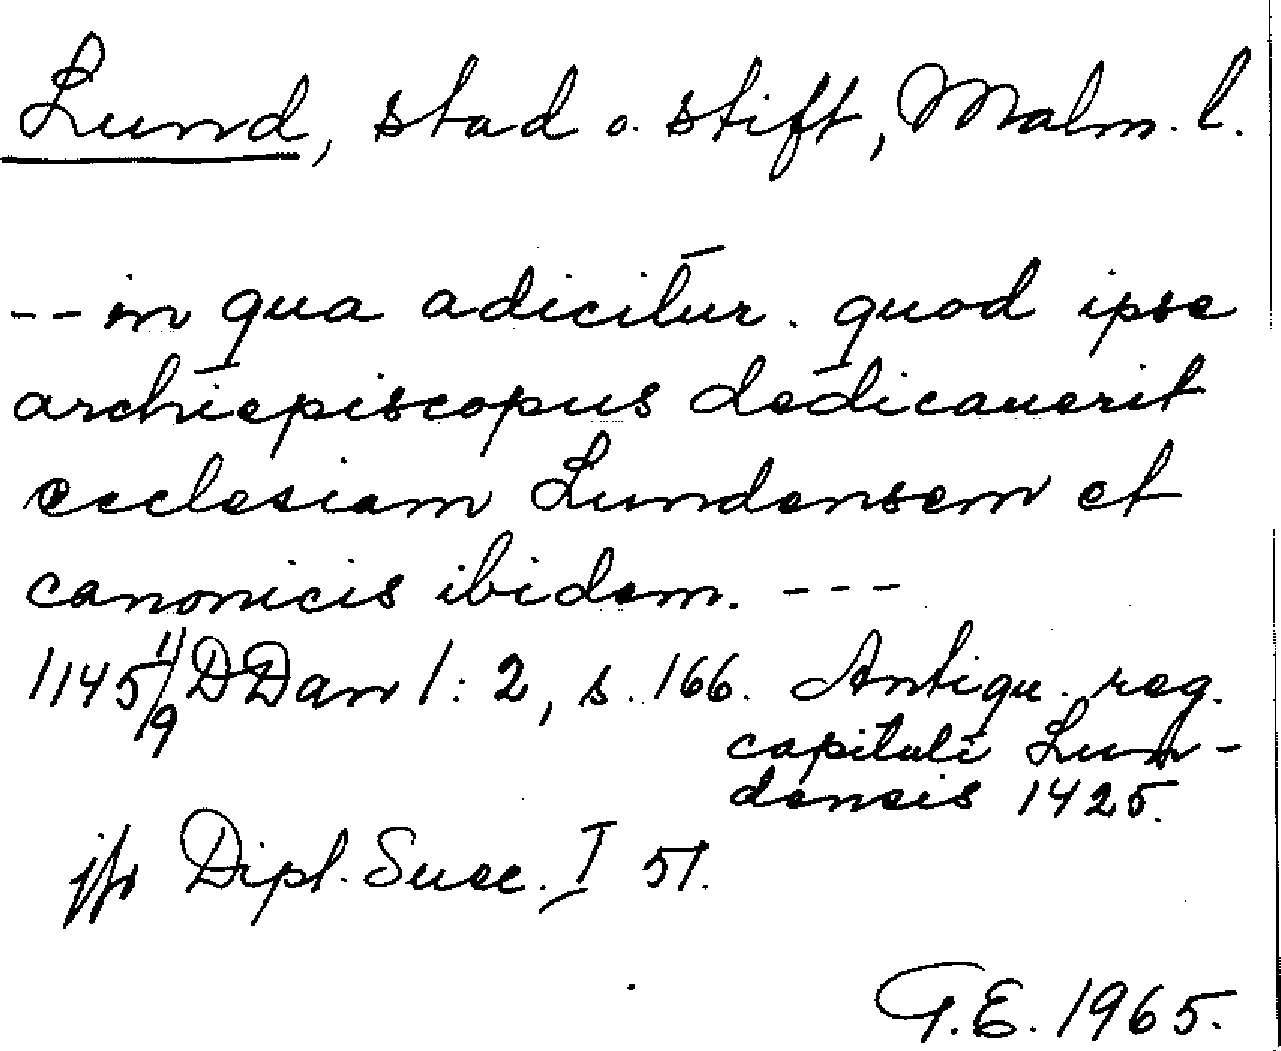 Lund, stad o. stift, Malm. l.
-- in qua adicitur. quod ipse
archiepiscopus dedicauerit
ecclesiam Lundensem et
canonicis ibidem. ---
1145 1/9 DDan 1:2, s. 166. Antiqu. reg.
capituli Lun-
densis 1425.
jfr Dipl. Suec. I 51.
G.E. 1965.